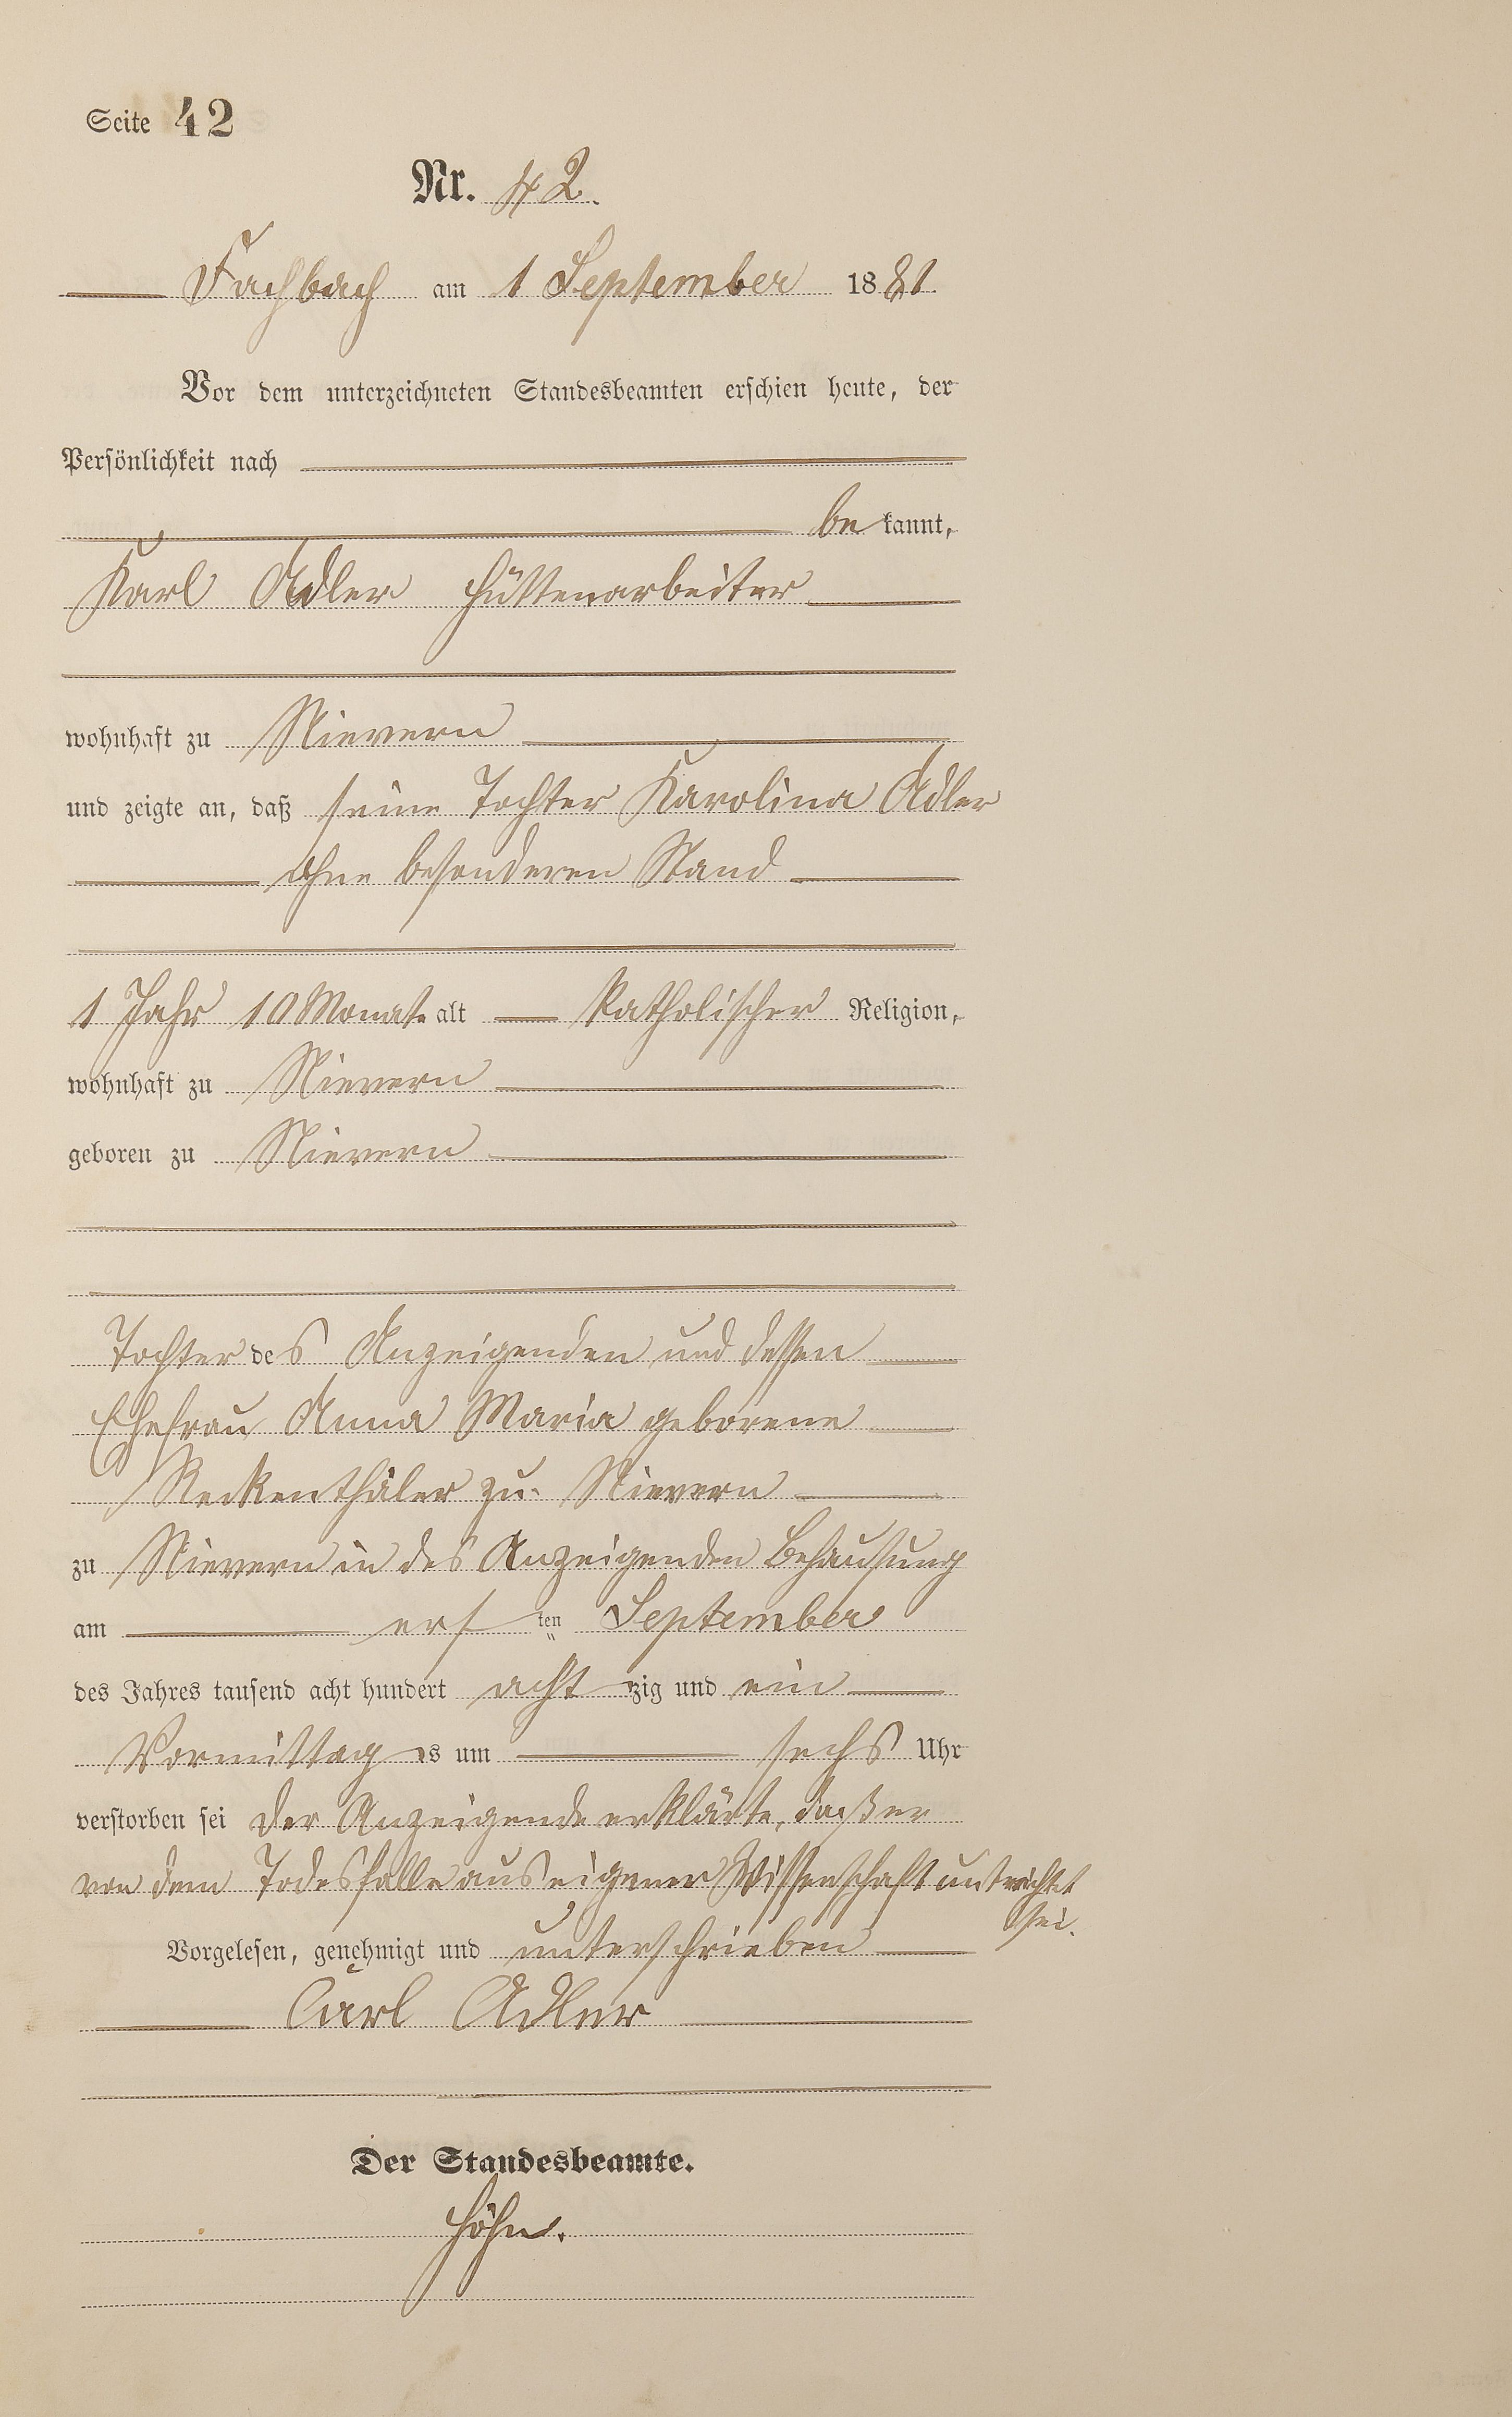 Seite 42
Nr. 42.
Fachbach am 1 September 1881.
Vor dem unterzeichneten Standesbeamten erschien heute, der
Persönlichkeit nach
be kannt,
Karl Adler Hüttenarbeiter
wohnhaft zu Nievern
und zeigte an, daß seine Tochter Karolina Adler
ohne besonderen Stand
1 Jahr 10 Monate alt katholischer Religion,
wohnhaft zu Nievern
geboren zu Nievern
Tochter des Anzeigenden und dessen
Ehefrau Anna Maria geborene
Reckenthäler zu Nievern
zu Nievern in des Anzeigenden Behausung
am ersten September
des Jahres tausend acht hundert acht zig und ein
Vormittag es um sechs Uhr
verstorben sei der Anzeigende erklärte, daß er
von dem Todesfalle aus eigener Wissenschaft unterrichtet
sei.
Vorgelesen, genehmigt und unterschrieben
Carl Adler
Der Standesbeamte.
Höhn.